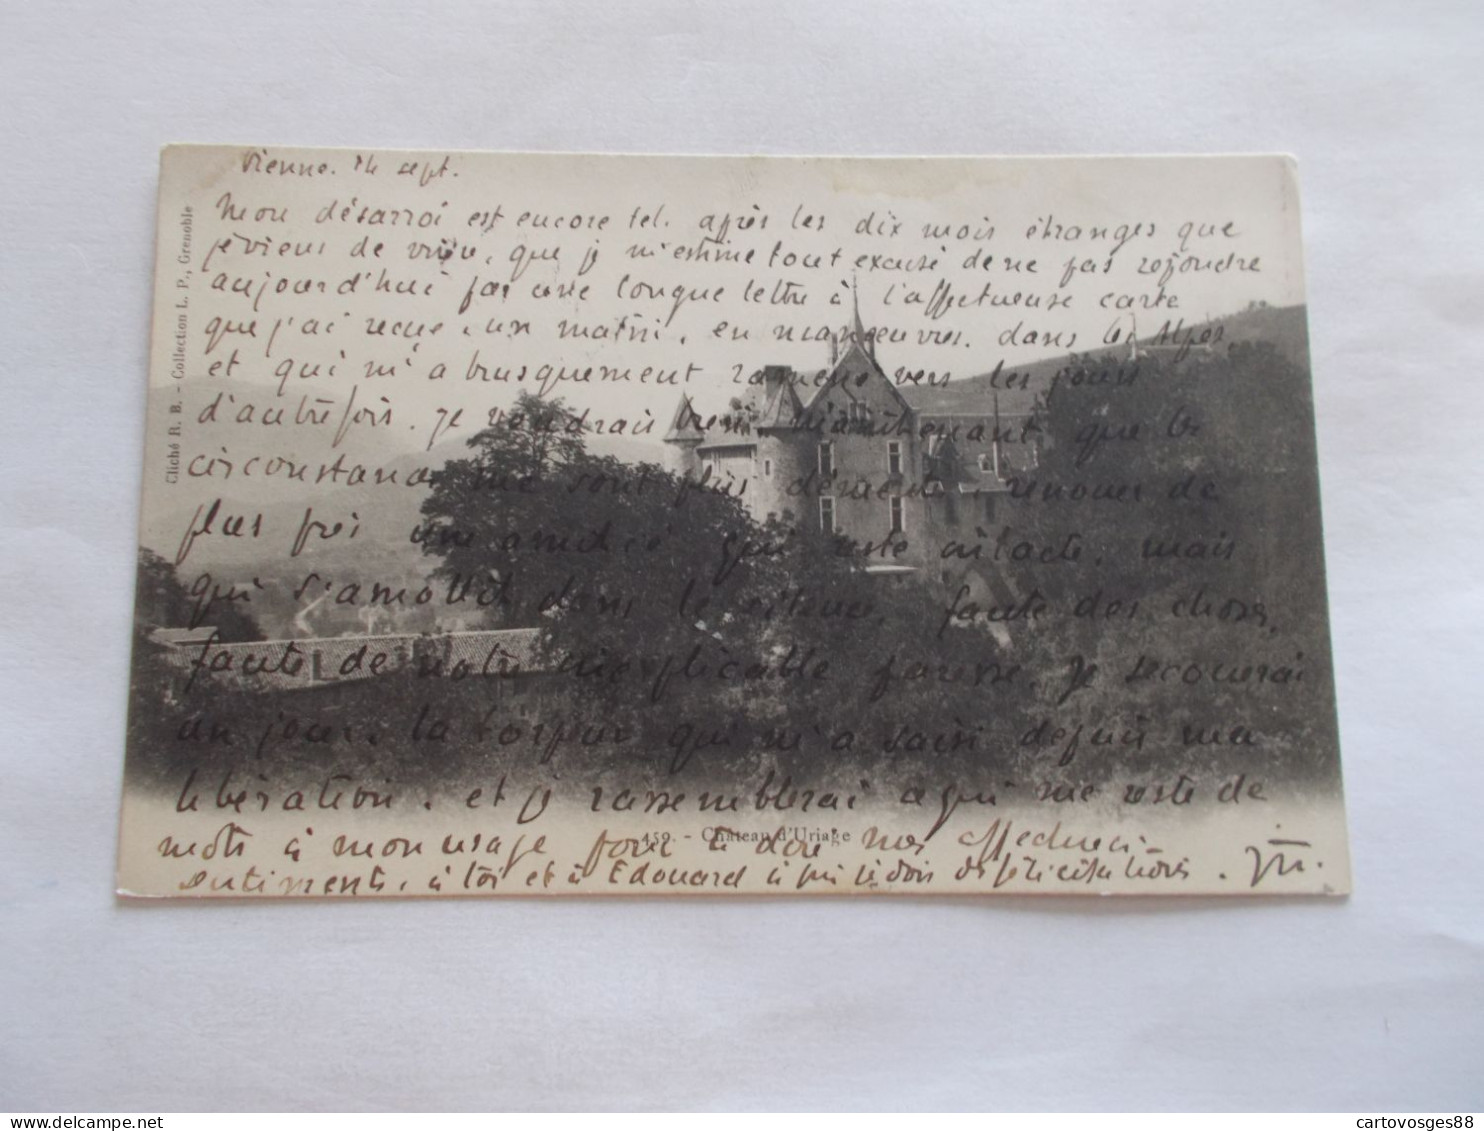 Vienne. 14 sept.
Mon désarroi est encore tel. après les dix mois étranges que
je viens de vivre, que je m'estime tout excusé de ne pas rejoindre
aujourd'hui par une longue lettre à l'affectueuse carte
que j'ai reçue, un matin, en manœuvres. dans les Alpes,
et qui m'a brusquement ramené vers les jours
d'autrefois. Je voudrais bien, maintenant que les
circonstances me sont plus clémentes, renouer de
plus près une amitié qui reste intacte, mais
qui s'amollit dans le silence, faute des choses,
faute de notre inexplicable paresse. Je secouerai
un jour, la torpeur qui m'a saisi depuis ma
libération. et je rassemblerai a qui me reste de
mots à mon usage pour te dire mes affectueux
sentiments, à toi et à Edouard à qui je dois des félicitations.
Cliché R. B. - Collection L. P., Grenoble
459. - Château d'Uriage
cartovosges88